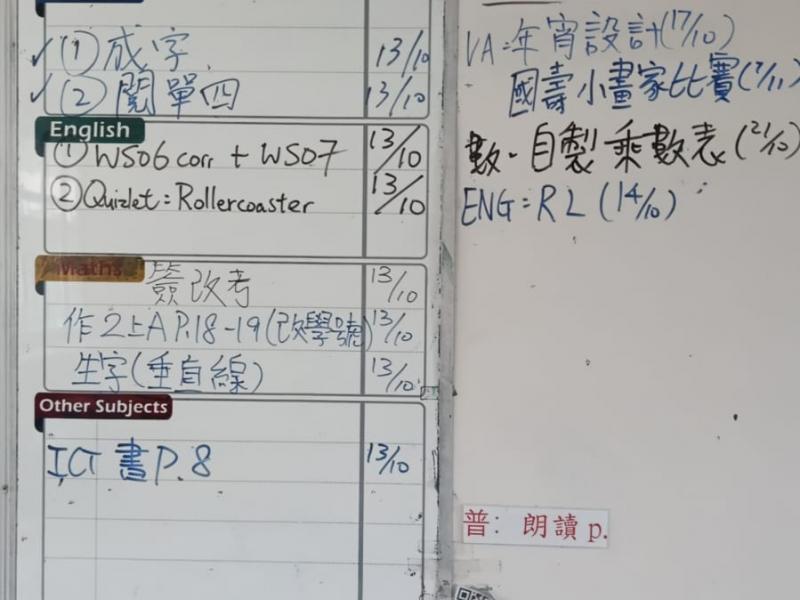 ✓① 成字 13/10
✓② 閱單四 13/10
English
① WS06 corr + WS07 13/10
② Quizlet: Rollercoaster 13/10
Maths
簽改考 13/10
作2上A P.18-19(改學號) 13/10
生字(垂直線) 13/10
Other Subjects
ICT 書P.8 13/10
VA:年宵設計(17/10)
國壽小畫家比賽(7/11)
數.自製乘數表(21/10)
ENG:RL(14/10)
普: 朗讀 p.